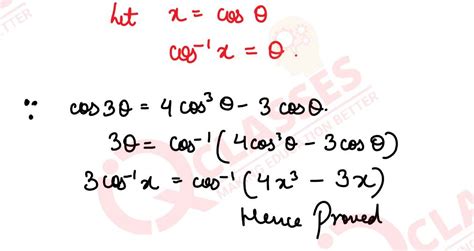 Let x = cos θ
cos⁻¹x = θ.
∵ cos3θ = 4cos³θ - 3cosθ.
3θ = cos⁻¹(4cos³θ - 3cosθ)
3cos⁻¹x = cos⁻¹(4x³ - 3x)
Hence Proved
CLASSES
MAKING EDUCATION BETTER